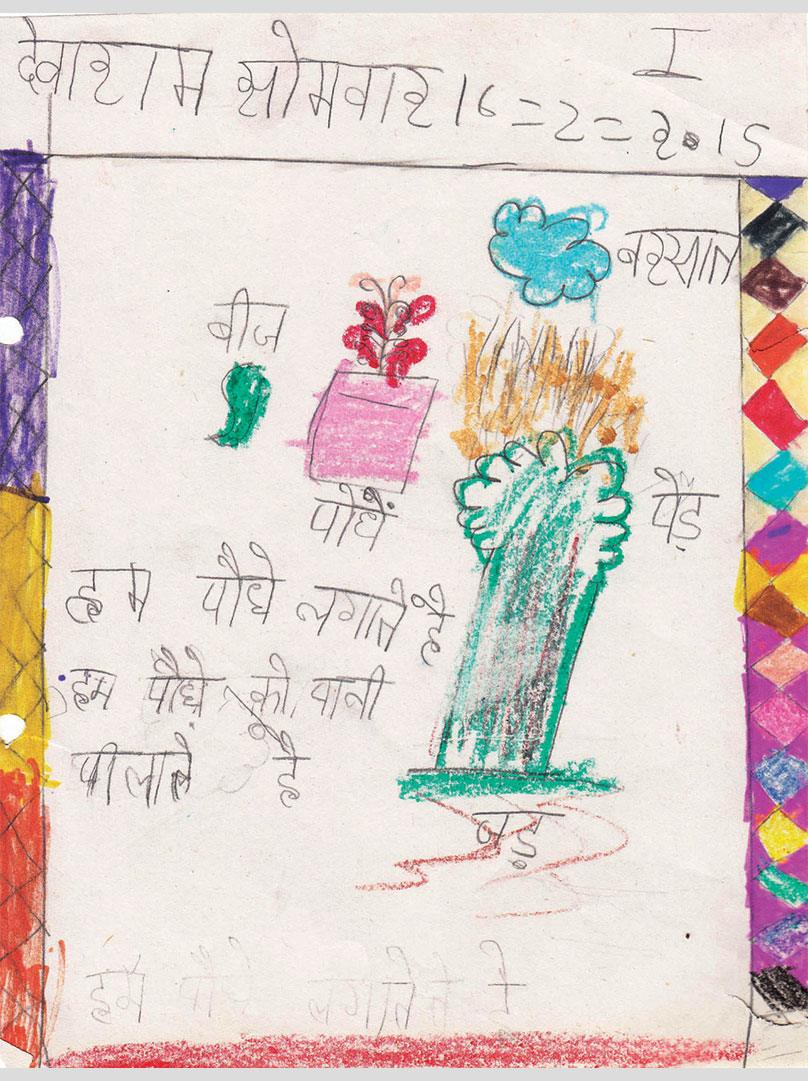 देवाराम सोमवार 16=2=2.15
I
बरसात
बीज
पोधैं
पेड़
हम पौधे लगाते है
हम पौधे को पानी
पीलाते है
जड़
हम पौधे लगाते